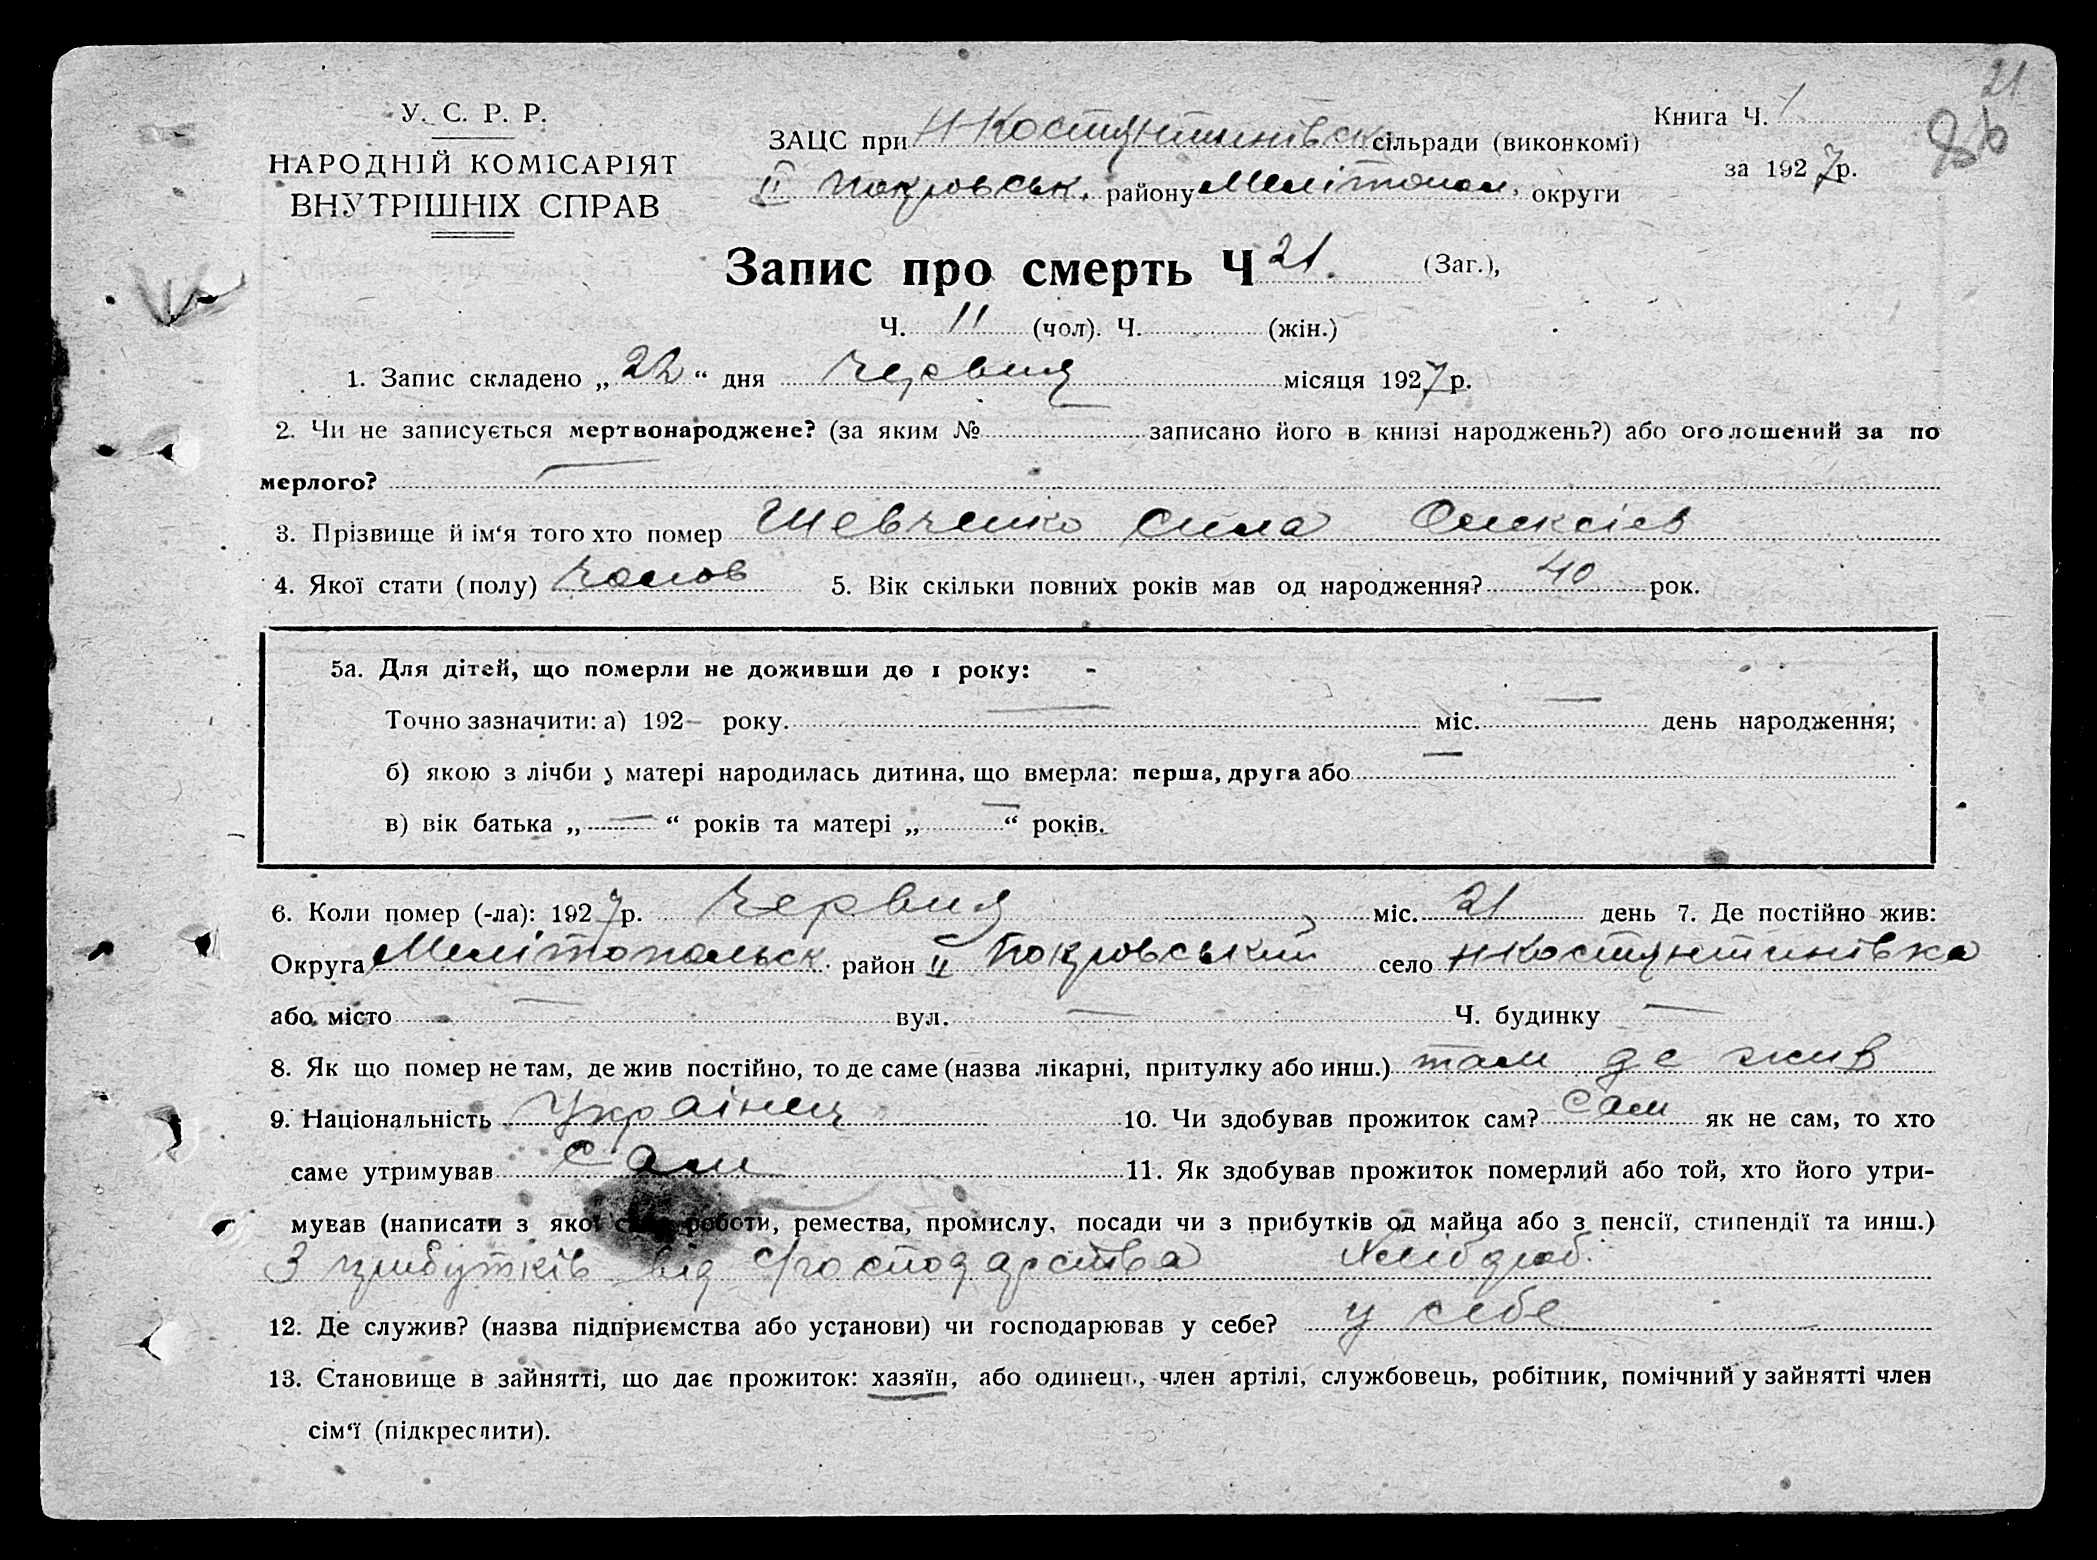 21
У. С. Р. Р.
НАРОДНІЙ КОМІСАРІЯТ
ВНУТРІШНІХ СПРАВ
Книга Ч. 1
за 1927 р.
ЗАЦС при Н-Костянтинівск сільради (виконкомі)
ІІ Покровськ. району Мелітопол. округи
Запис про смерть Ч 21. (Заг.),
Ч. 11 (чол). Ч. (жін.)
1. Запис складено „ 22 “ дня Червня місяця 1927 р.
2. Чи не записується мертвонароджене? (за яким № записано його в книзі народжень?) або оголошений за по
мерлого? —
3. Прізвище й ім‘я того хто помер Шевченко Сила Олексієв
4. Якої стати (полу) Чолов 5. Вік скільки повних років мав од народження? 40 рок.
5а. Для дітей, що померли не доживши до 1 року: -
Точно зазначити: а) 192— року. — міс. — день народження;
б) якою з лічби у матері народилась дитина, що вмерла: перша, друга або —
в) вік батька „ — “ років та матері „ — “ років.
6. Коли помер (-ла): 1927 р. Червня міс. 21 день 7. Де постійно жив:
Округа Мелітопольск район ІІ Покровський село Н-Костянтинівка
або місто — вул. — Ч. будинку —
8. Як що помер не там, де жив постійно, то де саме (назва лікарні, притулку або инш.) там де жив
9. Національність Українец 10. Чи здобував прожиток сам? Сам як не сам, то хто
саме утримував сам 11. Як здобував прожиток померлий або той, хто його утри-
мував (написати з якої роботи, ремества, промислу, посади чи з прибутків од майна або з пенсії, стипендії та инш.)
З прибутків від Господарства Хлібороб.
12. Де служив? (назва підприємства або установи) чи господарював у себе? у себе
13. Становище в зайнятті, що дає прожиток: хазяїн, або одинець, член артілі, службовець, робітник, помічний у зайнятті член
сім‘ї (підкреслити).